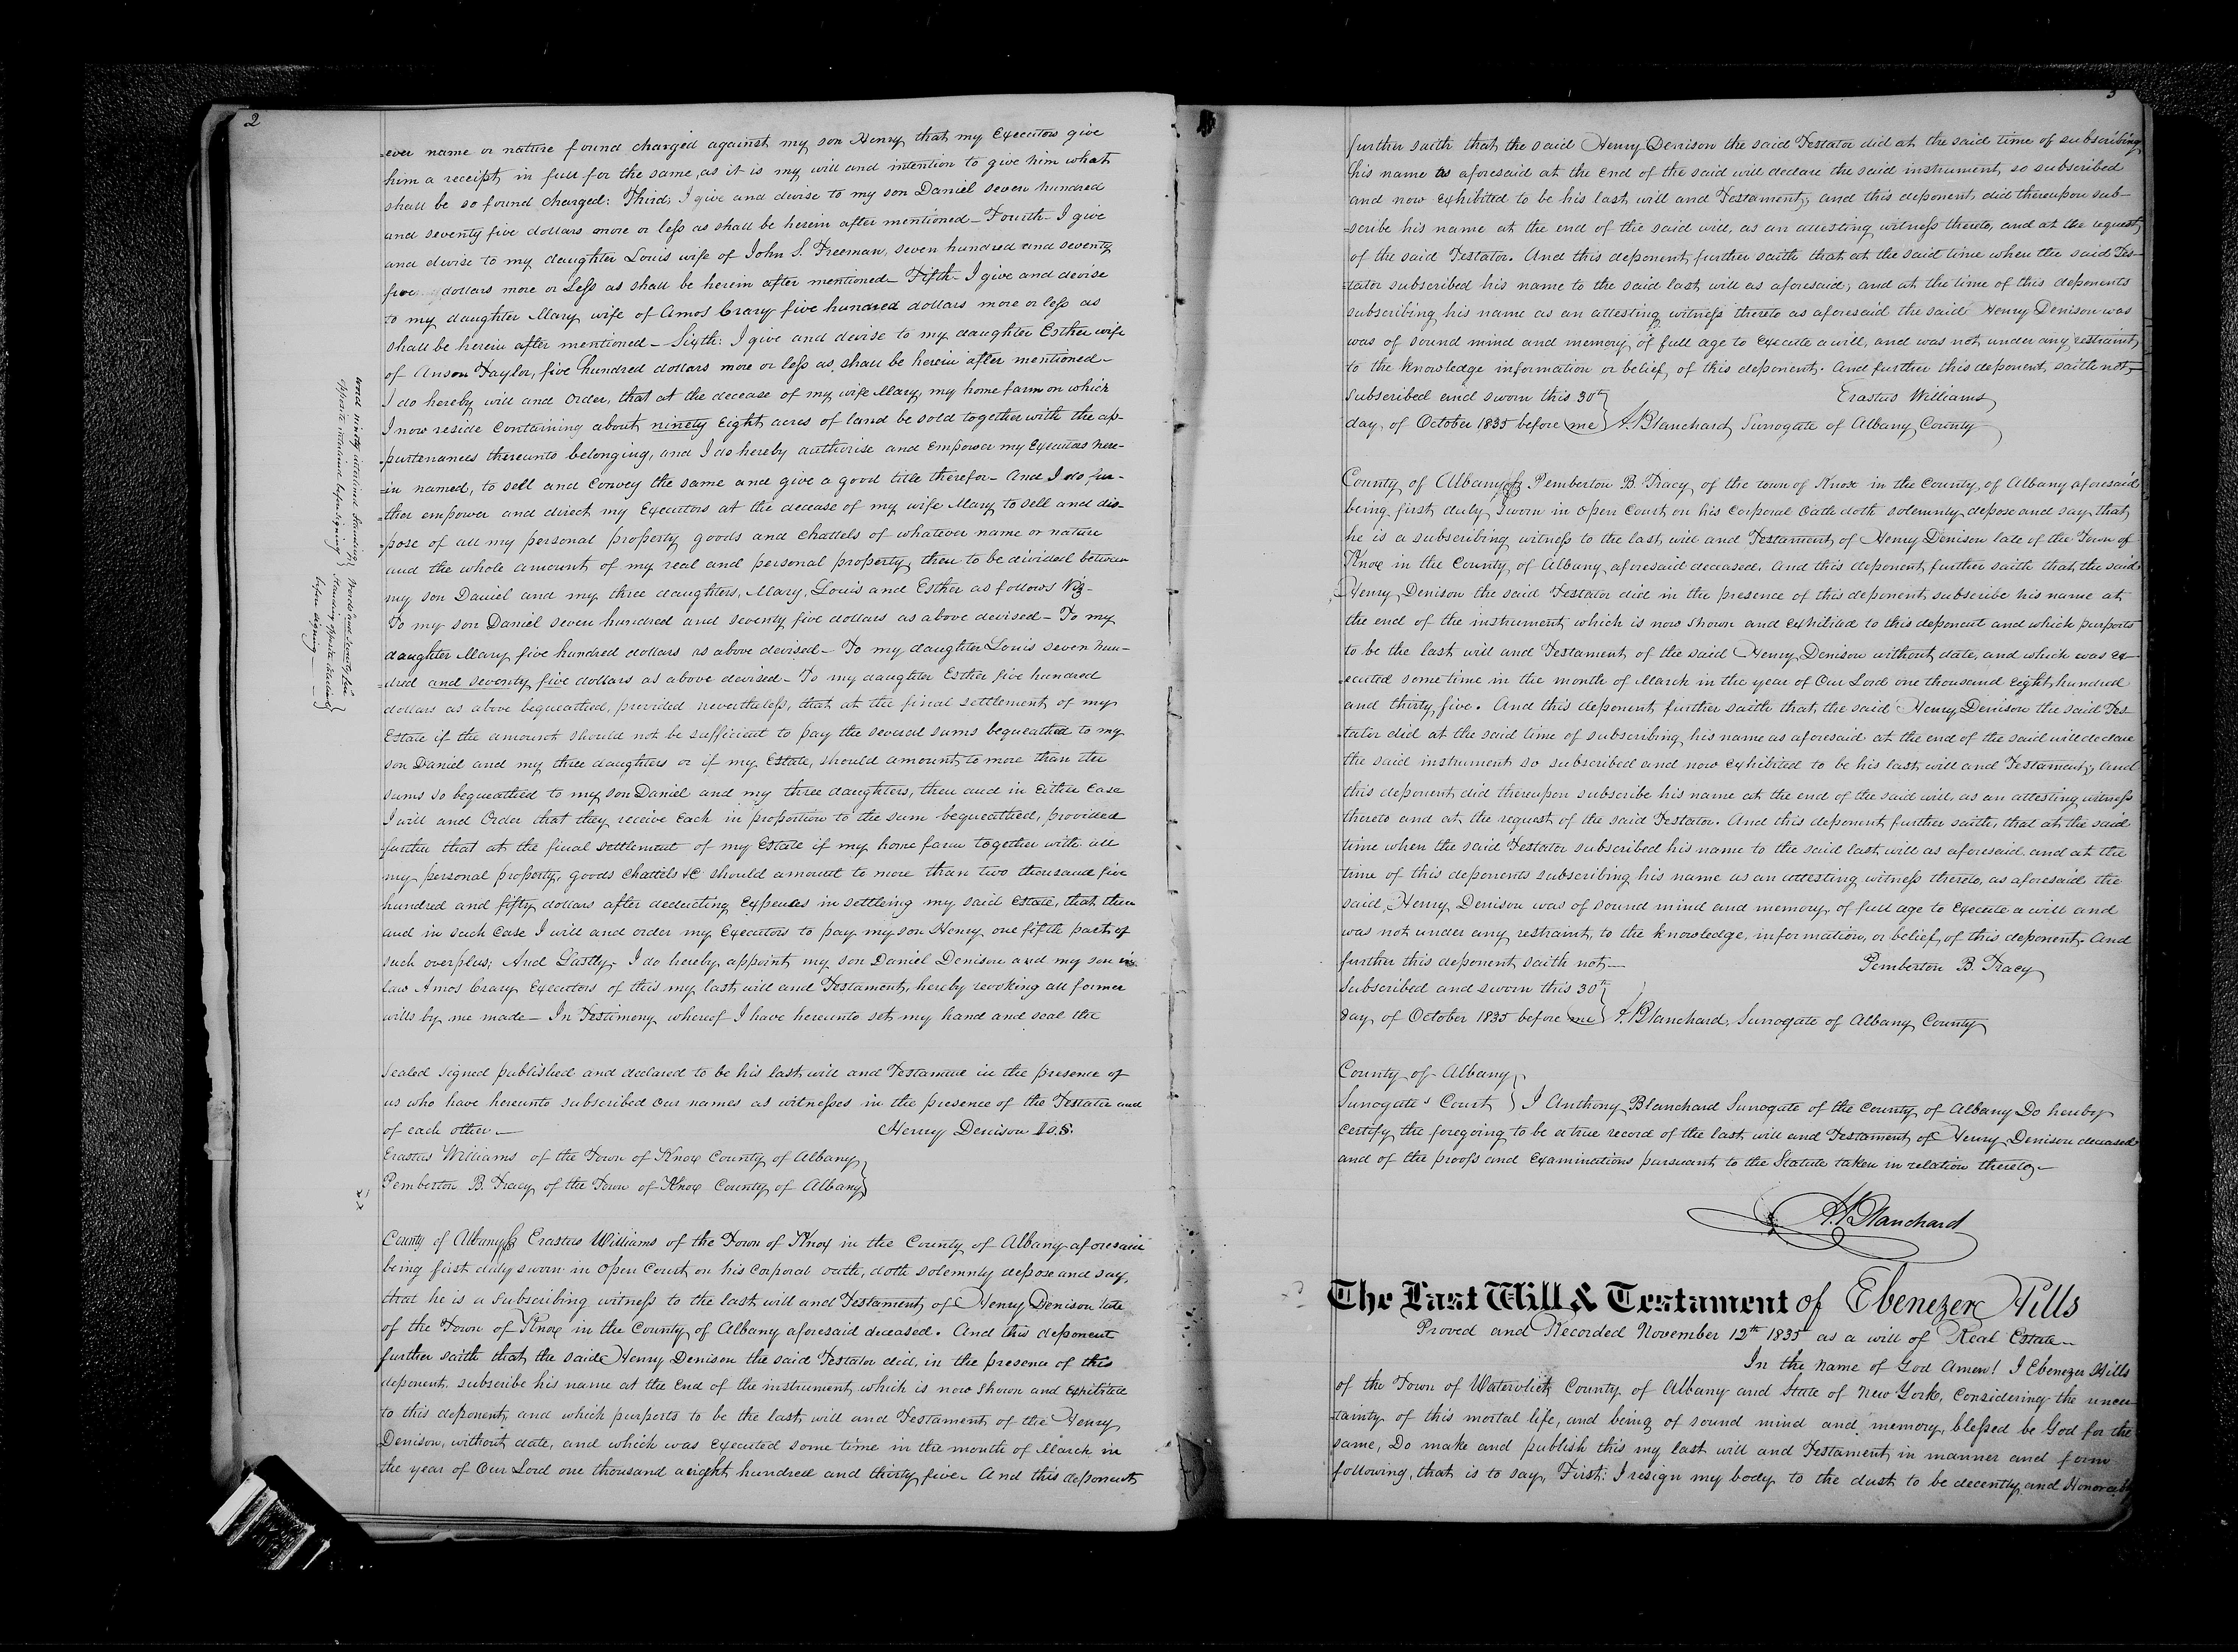 2
=ever name or nature found charged against my son Henry, that my Executors give
him a receipt, in full for the same, as it is my will and intention to give him what
shall be so found charged: Third, I give and devise to my son Daniel seven hundred
and seventy five dollars more or less as shall be herein after mentioned— Fourth— I give
and devise to my daughter Louis wife of John S. Freeman, seven hundred and seventy
five dollars more or Less as shall be herein after mentioned— Fifth— I give and devise
to my daughter Mary wife of Amos Crary five hundred dollars more or less as
shall be herein after mentioned— Sixth: I give and devise to my daughter Esther wife
of Anson Taylor, five hundred dollars more or less as shall be herein after mentioned—
I do hereby will and order, that at the decease of my wife Mary, my home farm on which
I now reside Containing about ninety Eight acres of land be sold together with the ap-
-purtenances thereunto belonging, and I do hereby authorise and Empower my Executors here-
=in named, to sell and Convey the same and give a good title therefor— And I do fur-
=ther empower and direct my Executors at the decease of my wife Mary to sell and dis-
-pose of all my personal property goods and Chattels of whatever name or nature
and the whole amount of my real and personal property, then to be divided between
my son Daniel and my three daughters, Mary, Louis and Esther as follows Viz—
To my son Daniel seven hundred and seventy five dollars as above devised— To my
daughter Mary five hundred dollars as above devised— To my daughter Louis seven hun-
-dred and seventy five dollars as above devised— To my daughter Esther five hundred
dollars as above bequeathed, provided nevertheless, that at the final settlement of my
Estate if the amount should not be sufficient to pay the several sums bequeathed to my
son Daniel and my three daughters or if my Estate, should amount to more than the
sums so bequeathed to my son Daniel and my three daughters, then and in Either Case
I will and Order that they receive Each in proportion to the sum bequeathed, provided
further that at the final settlement of my Estate if my home farm together with all
my personal property, goods Chattels &C should amount to more than two thousand five
hundred and fifty dollars after deducting Expences in settleing my said Estate, that then
and in such Case I will and order my Executors to pay my son Henry one fifth part of
such overplus; And Lastly— I do hereby appoint my son Daniel Denison and my son in
law Amos Crary Executors of this my last will and Testament, hereby revoking all former
wills by me made— In Testimony whereof I have hereunto set my hand and seal the
Sealed signed published and declared to be his last will and Testament in the presence of
us who have hereunto subscribed our names as witnesses in the presence of the Testator and
of each other— Henry Denison L.S.
Erastus Williams of the Town of Knox County of Albany
Pemberton B. Tracy of the Town of Knox County of Albany
County of Albany ss Erastus Williams of the Town of Knox in the County of Albany aforesaid
being first duly sworn in Open Court on his Corporal oath, doth solemnly depose and say,
that he is a Subscribing witness to the last will and Testament of Henry Denison late
of the Town of Knox in the County of Albany aforesaid deceased. And this deponent
further saith that the said Henry Denison the said Testator did, in the presence of this
deponent, subscribe his name at the End of the instrument which is now shown and Exhibited
to this deponent, and which purports to be the last will and Testament of the Henry
Denison, without date, and which was Executed some time in the month of March in
the year of Our Lord one thousand aeight hundred and thirty five— And this deponent
word ninety interlined standing
opposite interlined before signing
Words "and seventy five"
standing opposite interlined
before signing—
3
further saith that the said Henry Denison the said Testator did at the said time of subscribing
his name as aforesaid at the End of the said will declare the said instrument, so subscribed
and now Exhibited to be his last will and Testament; and this deponent, did thereupon sub-
=scribe his name at the end of the said will, as an attesting witness thereto, and at the request
of the said Testator. And this deponent, further saith that at the said time when the said Tes-
=tator subscribed his name to the said last will as aforesaid; and at the time of this deponents
subscribing his name as an attesting witness thereto as aforesaid the said Henry Denison was
was of sound mind and memory, of full age to Execute a will, and was not, under any restraint,
to the knowledge information or belief, of this deponent. And further this deponent, saith not—
Subscribed and sworn this 30th Erastus Williams
day of October 1835 before me A. Blanchard, Surrogate of Albany County
County of Albany ss Pemberton B. Tracy, of the town of Knox in the County of Albany aforesaid
being first duly Sworn in Open Court on his Corporal Oath doth solemnly depose and say that
he is a subscribing witness to the last will and Testament of Henry Denison late of the Town of
Knox in the County of Albany aforesaid deceased. And this deponent, further saith that the said
Henry Denison the said Testator did in the presence of this deponent, subscribe his name at
the end of the instrument, which is now shown and Exhibited to this deponent and which purports
to be the last will and Testament of the said Henry Denison without date, and which was Ex-
-ecuted some time in the month of March in the year of Our Lord one thousand Eight hundred
and thirty five. And this deponent, further saith that, the said Henry Denison the said Tes-
-tator did at the said time of subscribing his name as aforesaid at the end of the said will declare
the said instrument so subscribed and now Exhibited to be his last will and Testament; and
this deponent did thereupon subscribe his name at the end of the said will, as an attesting witness
thereto and at the request of the said Testator. And this deponent further saith, that at the said
time when the said Testator subscribed his name to the said last will as aforesaid, and at the
time of this deponents subscribing his name as an attesting witness thereto, as aforesaid the
said, Henry Denison was of sound mind and memory, of full age to Execute a will and
was not under any restraint, to the knowledge, information, or belief, of this deponent. And
further this deponent saith not— Pemberton B. Tracy
Subscribed and sworn this 30th
day of October 1835 before me A. Blanchard, Surrogate of Albany County
County of Albany
Surrogate's Court I Anthony Blanchard Surrogate of the County of Albany Do hereby
Certify the foregoing to be a true record of the last will and Testament of Henry Denison deceased
and of the proofs and Examinations pursuant to the Statute taken in relation thereto—
A. Blanchard
The Last Will & Testament of Ebenezer Hills
Proved and Recorded November 12th 1835 as a will of Real Estate—
In the name of God Amen! I Ebenezer Hills
of the Town of Watervliet, County of Albany and State of New York, Considering the uncer-
-tainty of this mortal life, and being of sound mind and memory, blessed be God for the
same, Do make and publish this my last will and Testament in manner and form
following, that is to say, First: I resign my body to the dust to be decently and Honorably